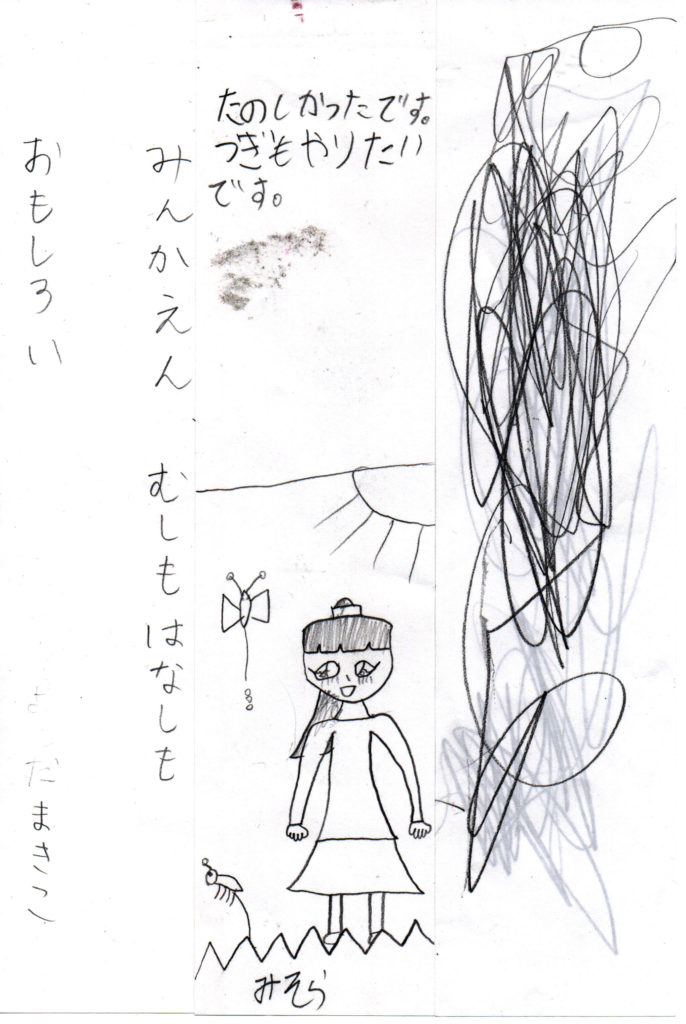 たのしかったです。
つぎもやりたい
です。
みそら
みんかえん むしもはなしも
おもしろい
よしだまきこ